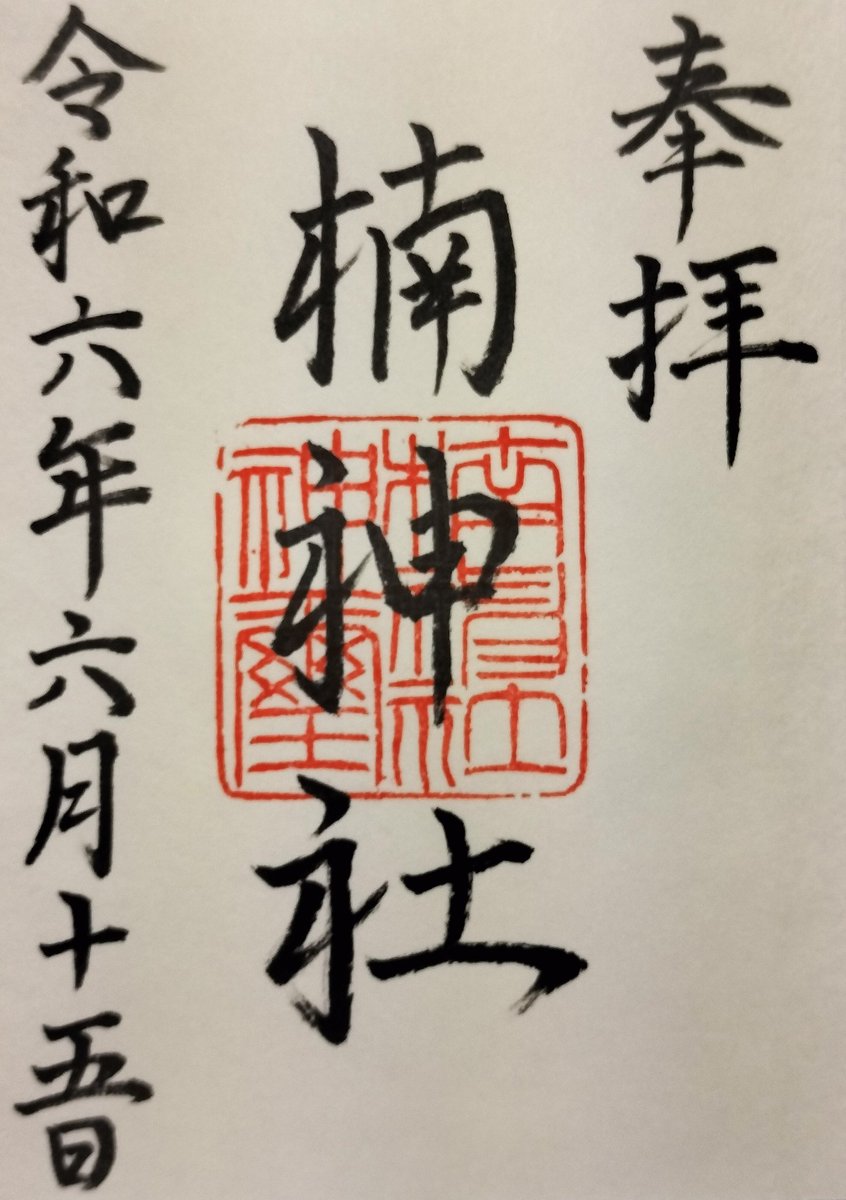 奉拝
楠神社
令和六年六月十五日